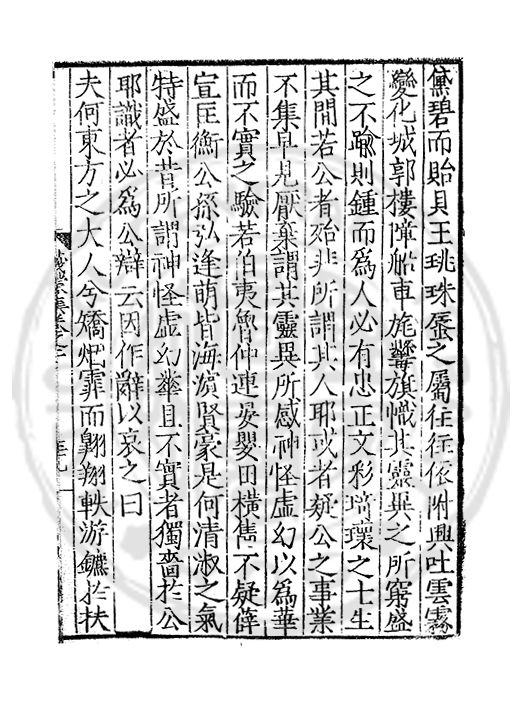 黛碧而貽貝王珧珠蜃之屬往往依附興吐雲霧
變化城郭樓障船車旄纛旗幟其靈異之所窮盛
之不踰則鍾而爲人必有忠正文彩琦瓌之士生
其間若公者殆非所謂其人耶或者疑公之事業
不集早見厭棄謂其靈異所感神怪虛幻以爲華
而不實之驗若伯夷魯仲連晏嬰田橫雋不疑薛
宣匡衡公孫弘逢萌皆海濱賢豪是何清淑之氣
特盛於昔所謂神怪虛幻華且不實者獨嗇於公
耶識者必爲公辯云因作辭以哀之曰
夫何東方之大人兮矯灺霏而翱翔軼游鑣於扶